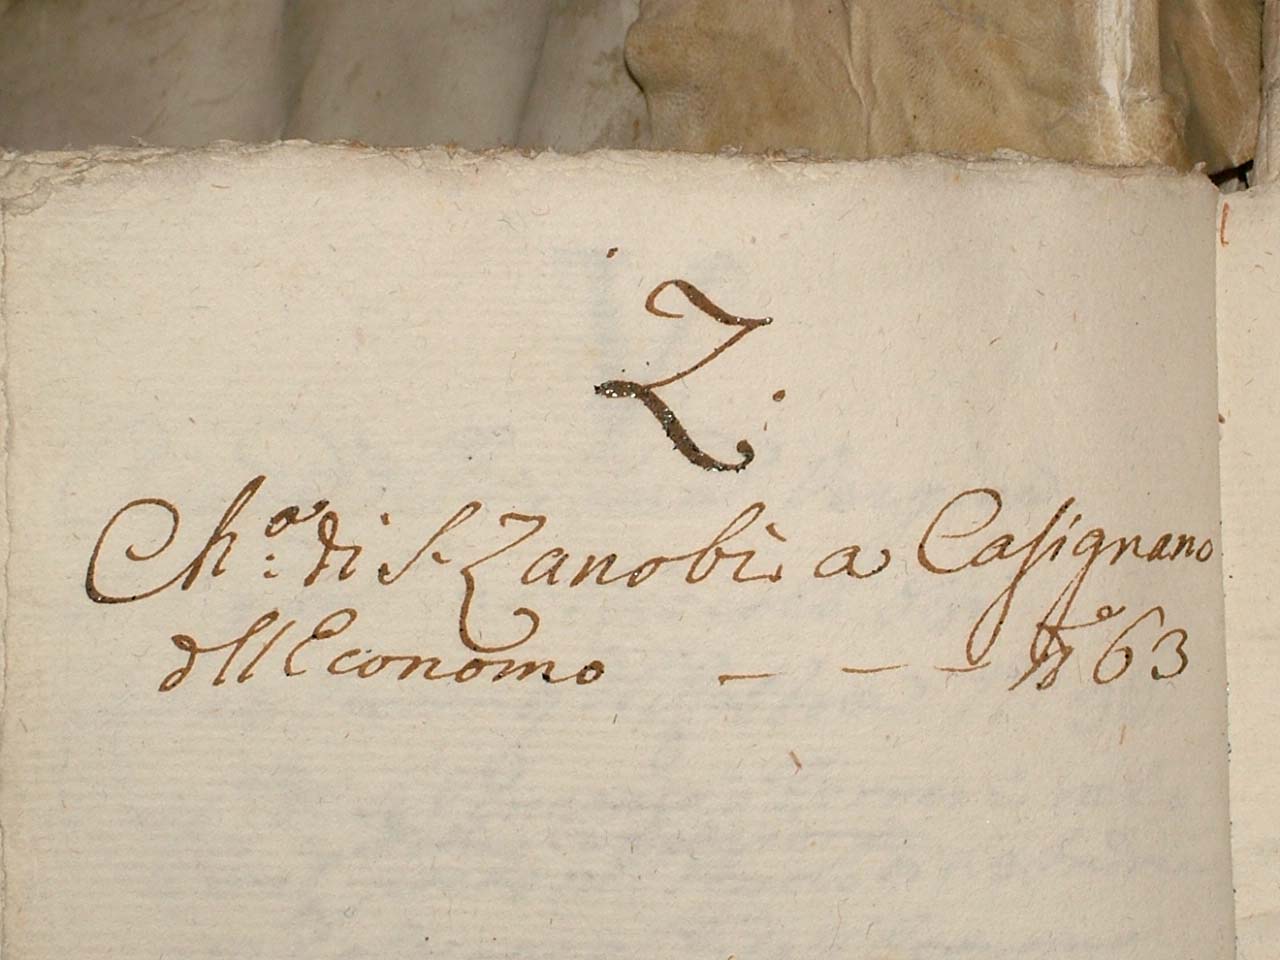 Z.
Ch.ª di S. Zanobi a Casignano
dll Economo — — — Nº 63